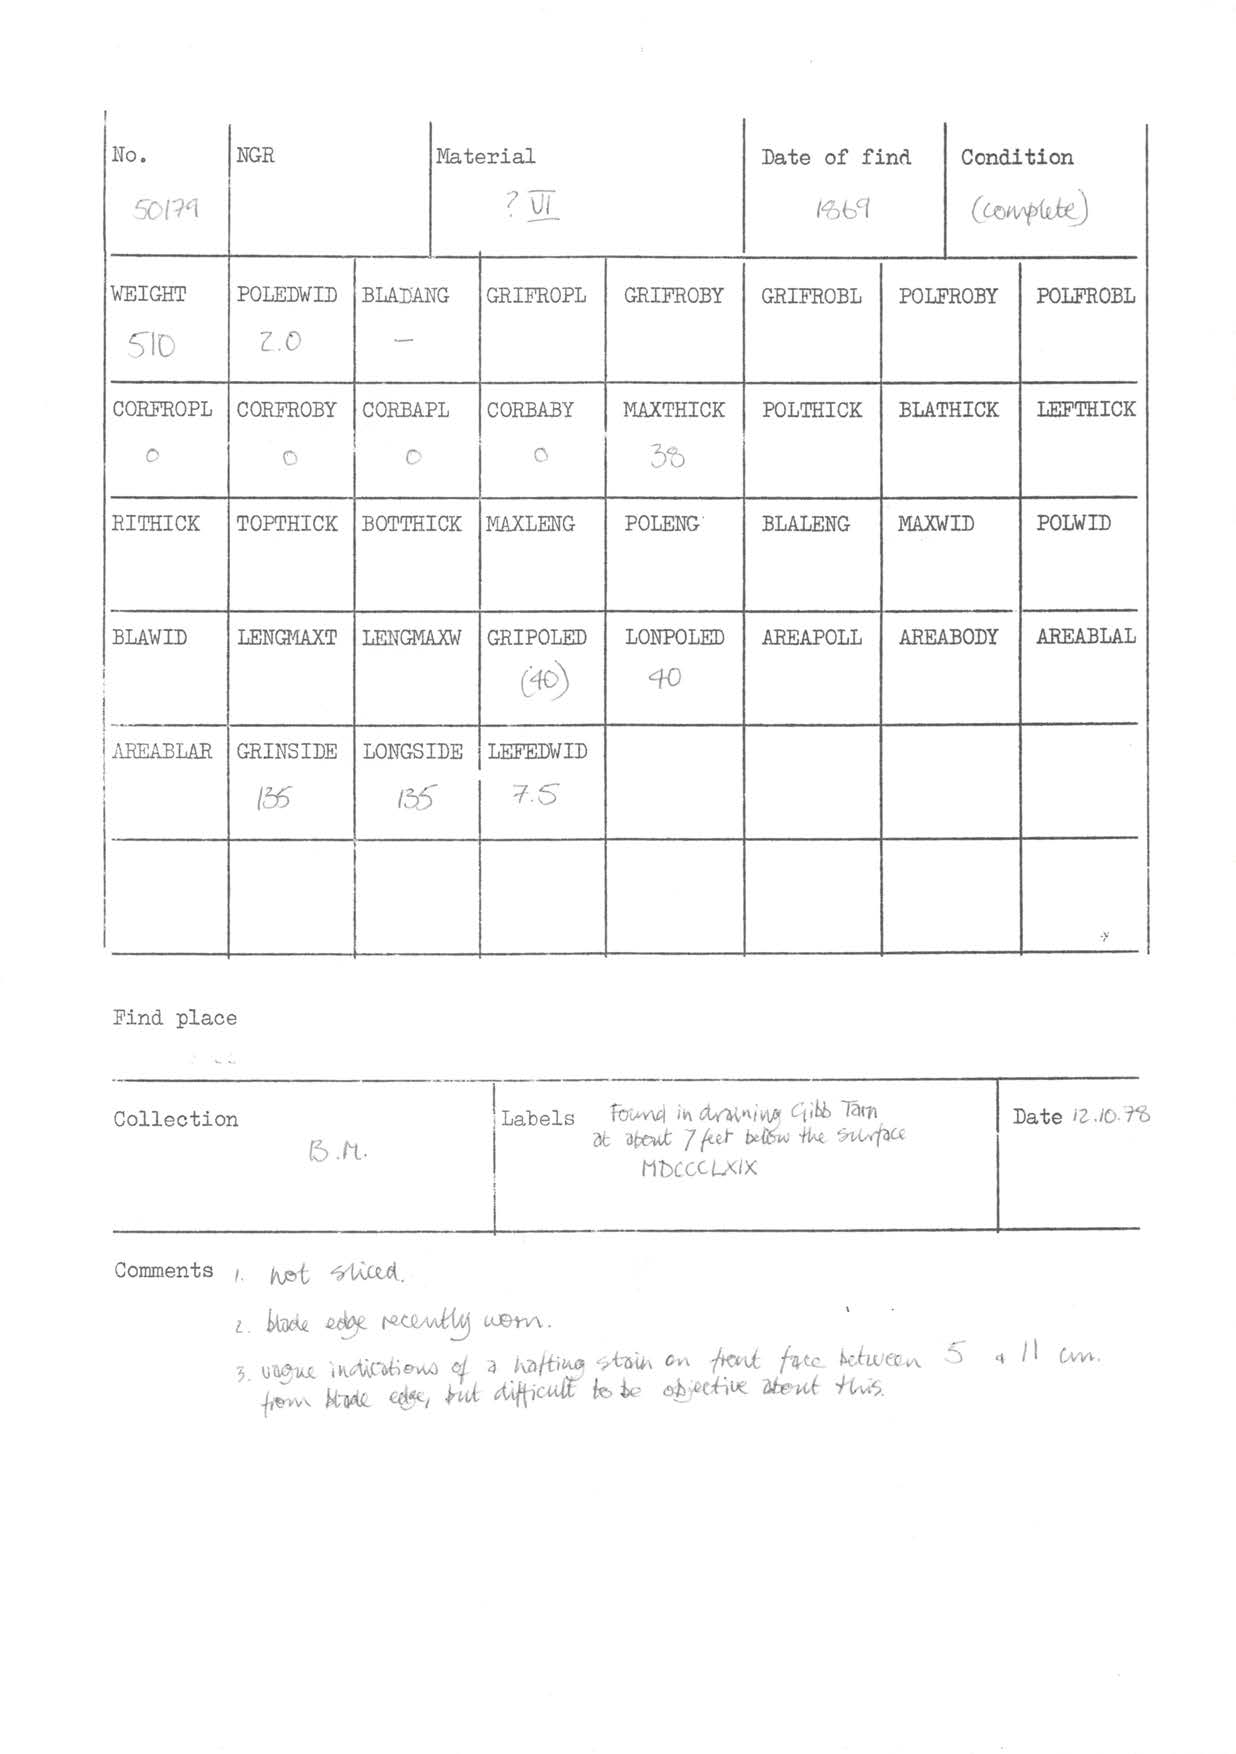 No. NGR Material Date of find Condition
50179 ? VI 1869 (complete)
WEIGHT POLEDWID BLADANG GRIFROPL GRIFROBY GRIFROBL POLFROBY POLFROBL
510 2.0 —
CORFROPL CORFROBY CORBAPL CORBABY MAXTHICK POLTHICK BLATHICK LEFTHICK
0 0 0 0 38
RITHICK TOPTHICK BOTTHICK MAXLENG POLENG BLALENG MAXWID POLWID
BLAWID LENGMAXT LENGMAXW GRIPOLED LONPOLED AREAPOLL AREABODY AREABLAL
(40) 40
AREABLAR GRINSIDE LONGSIDE LEFEDWID
135 135 7.5
Find place
Collection
B.M.
Labels Found in draining Gibb Tarn
at about 7 feet below the surface
MDCCCLXIX
Date 12.10.78
Comments 1. not sliced.
2. blade edge recently worn.
3. vague indications of a hafting stain on front face between 5 & 11 cm.
from blade edge, but difficult to be objective about this.